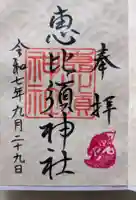 奉拝
恵比須神社
令和七年九月二十九日